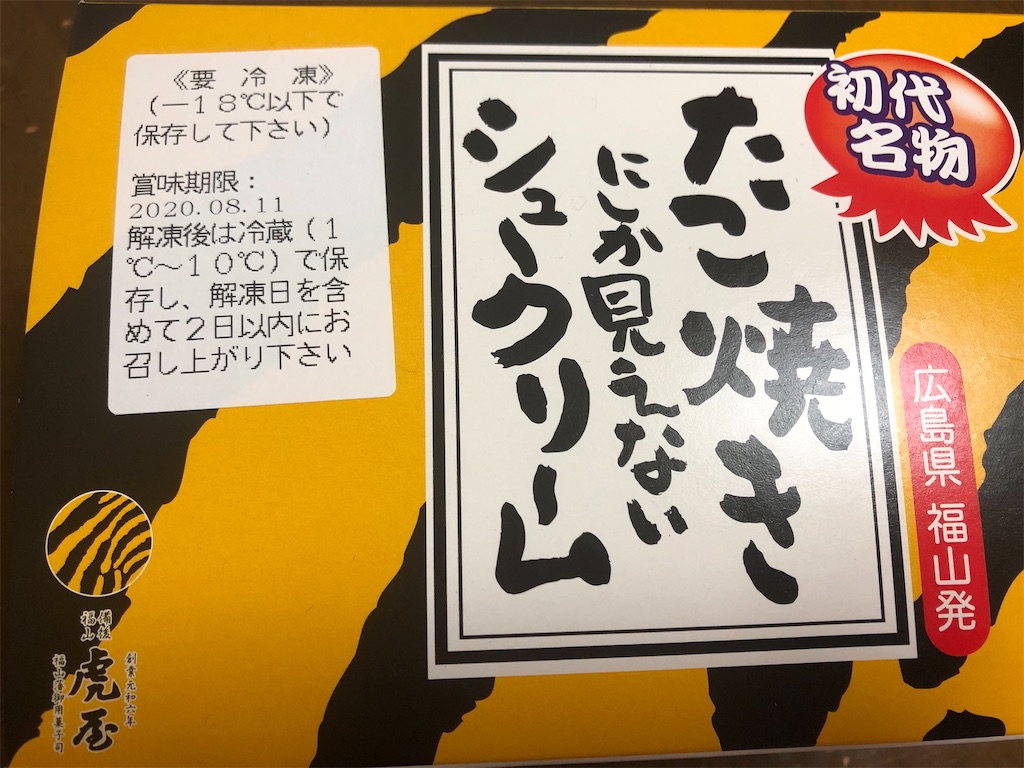 《要 冷 凍》
(−18℃以下で
保存して下さい)
賞味期限:
2020.08.11
解凍後は冷蔵(1
℃~10℃)で保
存し、解凍日を含
めて2日以内にお
召し上がり下さい
たこ焼き
にしか見えない
シュークリーム
初代
名物
広島県 福山発
備後
福山
創業元和六年
虎屋
福山藩御用菓子司